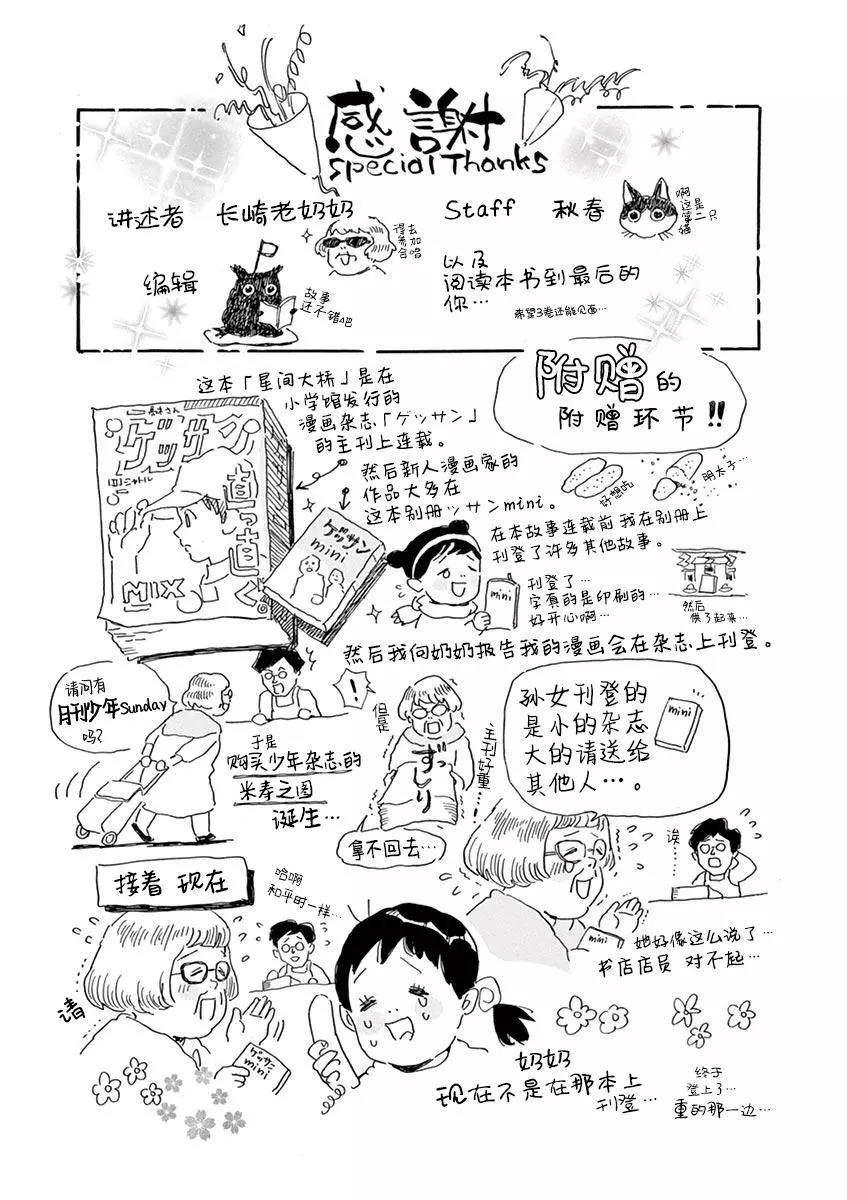 感謝
Special Thanks
讲述者 长崎老奶奶
得去
参加
合唱
Staff 秋春
啊
这是
第二只
猫
编辑
故事
还不错吧
以及
阅读本书到最后的
你…
希望3卷还能见面…
附赠的
附赠环节!!
这本「星间大桥」是在
小学馆发行的
漫画杂志「ゲッサン」
的主刊上连载。
ゲッサン
MIX
真っ直ぐ
然后新人漫画家的
作品大多在
这本别册ッサンmini。
ゲッサン
mini
好想吃
明太子…
在本故事连载前 我在别册上
刊登了许多其他故事。
刊登了…
字真的是印刷的…
好开心啊…
mini
然后
供了起来…
然后我向奶奶报告我的漫画会在杂志上刊登。
请问有
月刊少年Sunday
吗?
!
于是
购买少年杂志的
米寿之图
诞生…
但是
ずっしり
主刊好重
拿不回去…
孙女刊登的
是小的杂志
大的请送给
其他人…。
mini
诶
mini
她好像这么说了…
书店店员 对不起…
接着 现在
哈啊
和平时一样…
请
ゲッサン
mini
奶奶
现在不是在那本上
刊登…
终于
登上了…
重的那一边…